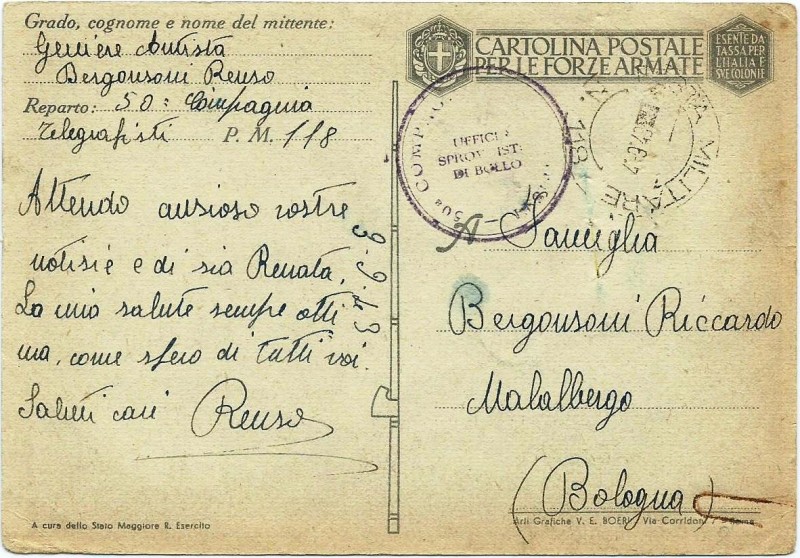 Grado, cognome e nome del mittente:
Geniere Autista
Bergonsoni Renso
Reparto: 50ª Compagnia
Telegrafisti P. M. 118
Attendo ansioso vostre
notisie e di sia Renata.
La mia salute sempre otti
ma, come spero di tutti voi.
Saluti cari Renso
9-9-43
A cura dello Stato Maggiore R. Esercito
CARTOLINA POSTALE
PER LE FORZE ARMATE
ESENTE DA
TASSA PER
L'ITALIA E
SVE COLONIE
50a COMP.
UFFICIO
SPROVVIST.
DI BOLLO
POSTA MILITARE
N. 118
A Famiglia
Bergonsoni Riccardo
Malalbergo
(Bologna)
Arti Grafiche V. E. BOERI - Via Corridoni 7 - Roma